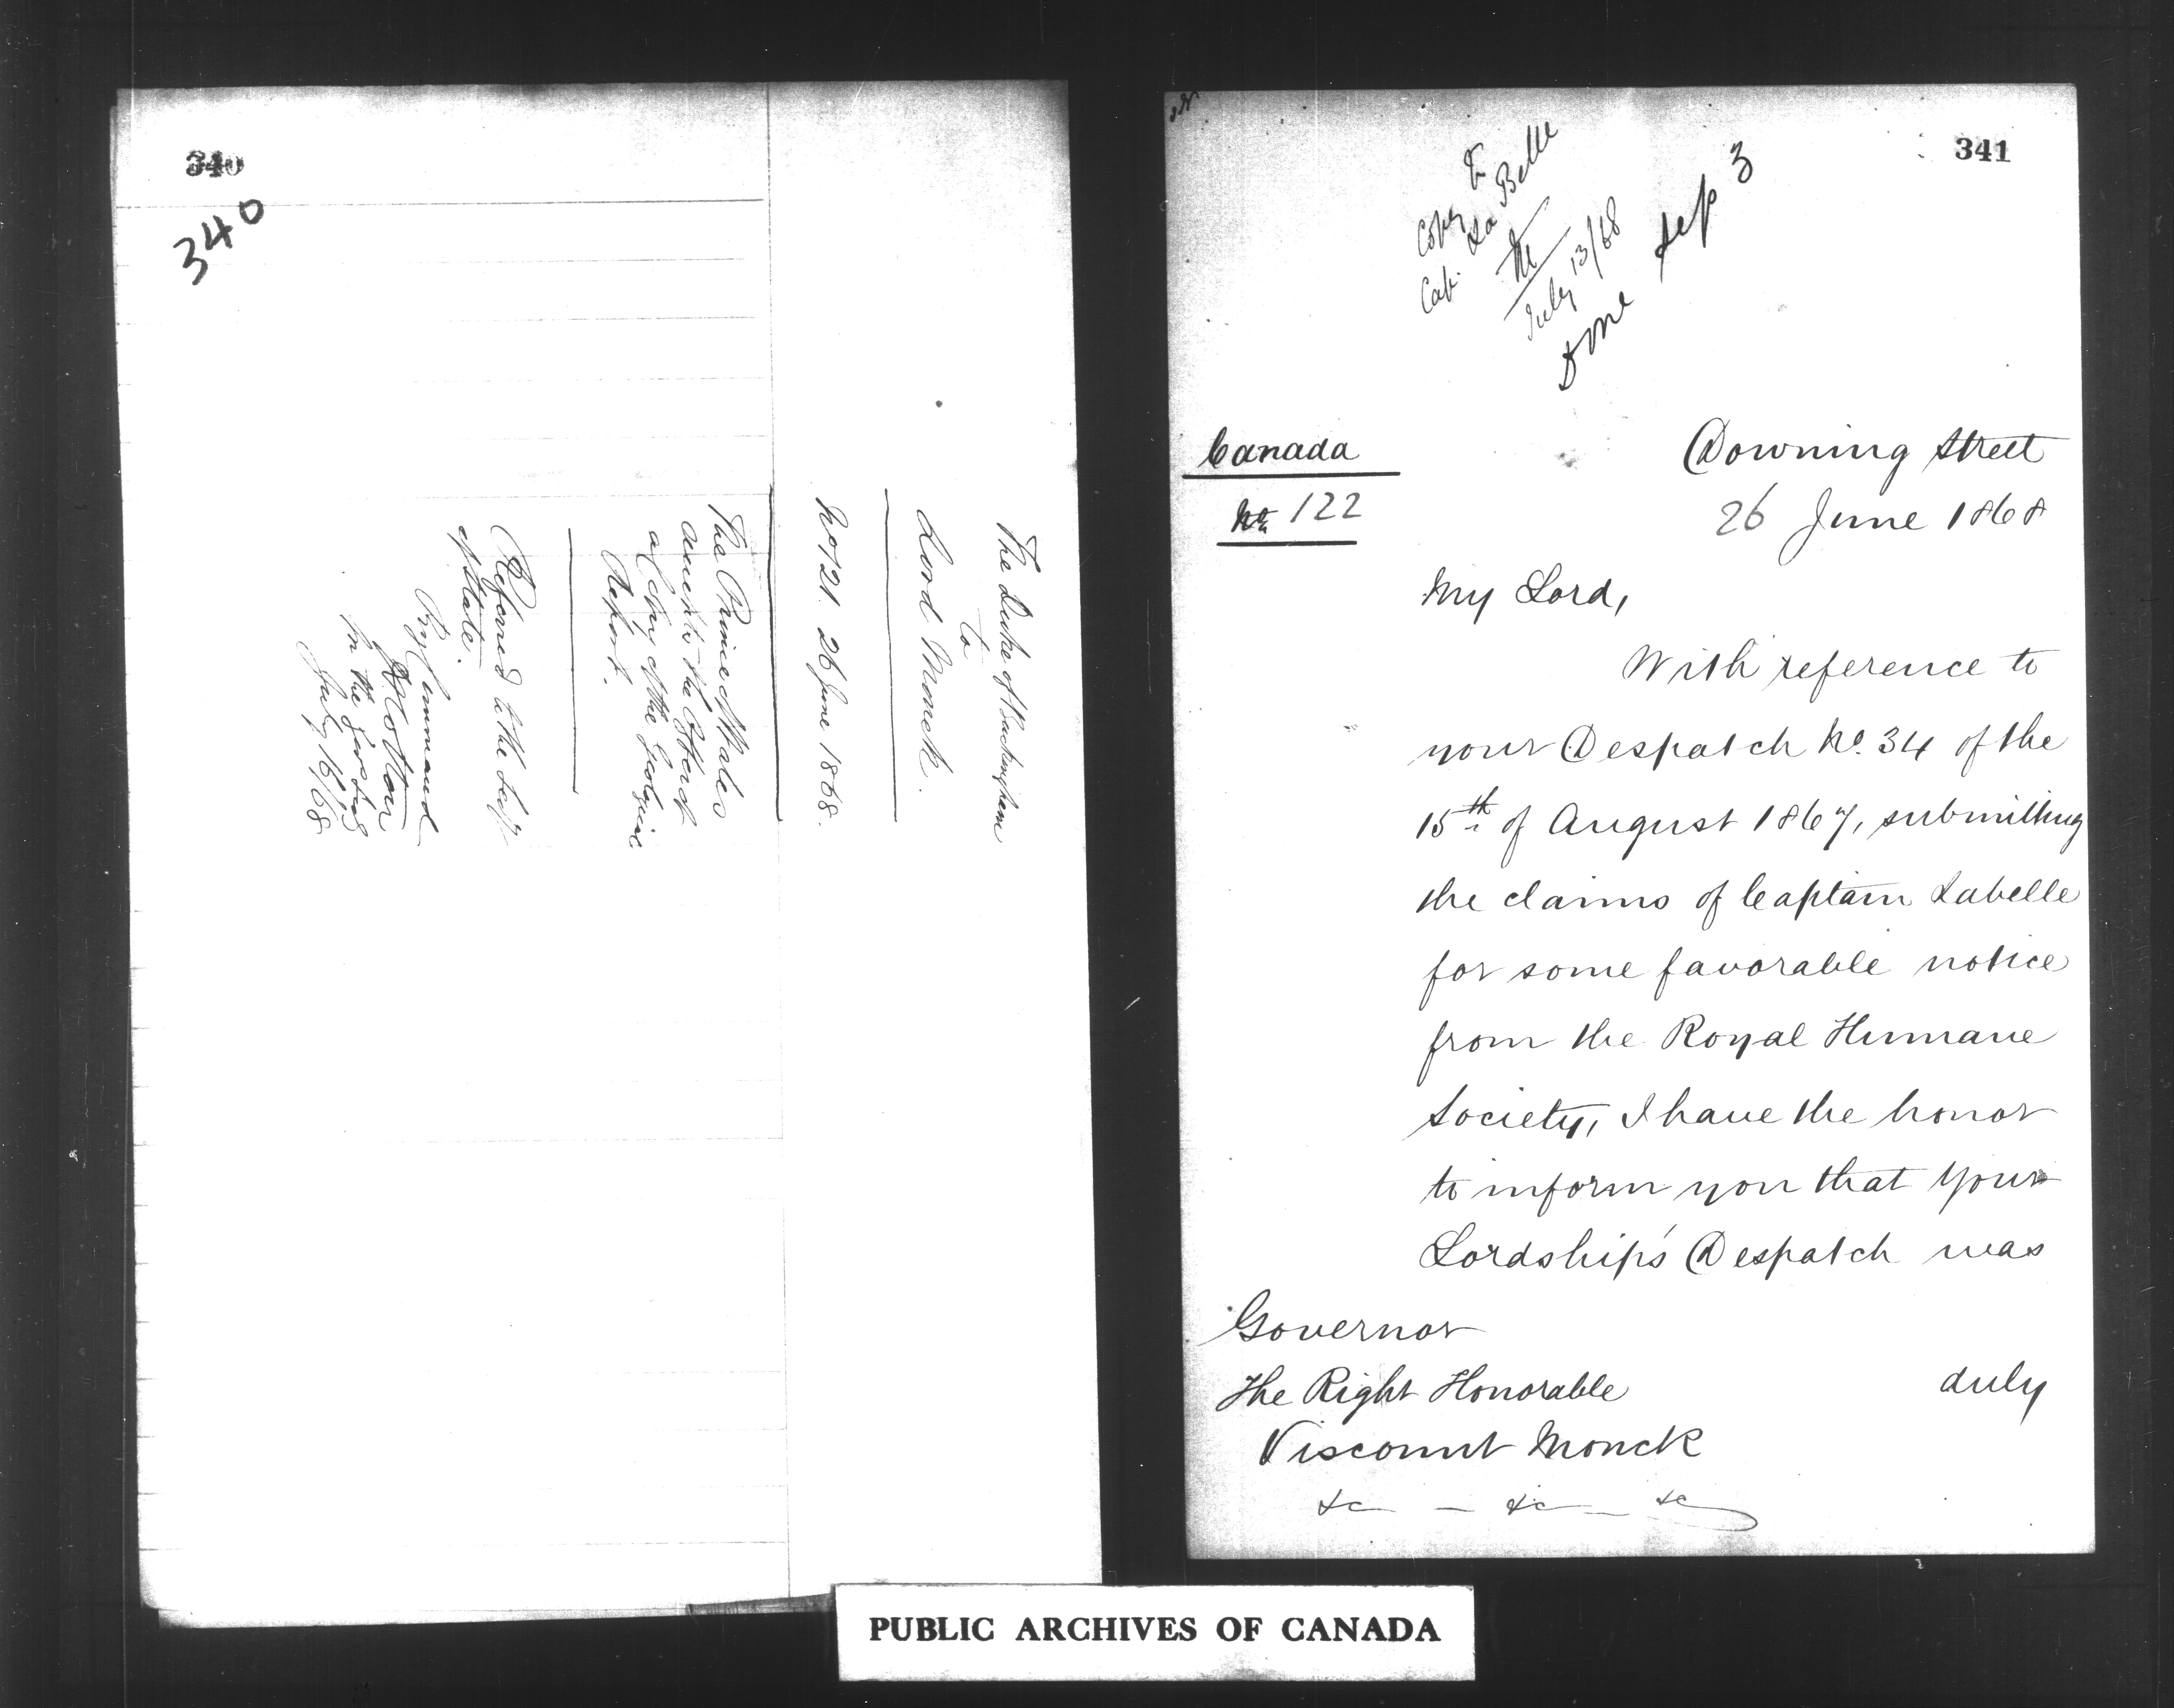 340
340
The Duke of Buckingham
to
Lord Monck.
No 121. 26 June 1868.
The Prince of Wales
accepts the offer of
a Copy of the Geological
Report.
Referred to the Secy
of State.
By Command
In the Gov's Sec
July 16/68
341
Copy to
Cap. La Belle
M
July 13/68
Done Sep 3
Canada
No. 122
Downing Street
26 June 1868
My Lord,
With reference to
your Despatch No. 34 of the
15th of August 1867, submitting
the claims of Captain Labelle
for some favorable notice
from the Royal Humane
Society, I have the honor
to inform you that your
Lordship's Despatch was
Governor
The Right Honorable
duly
Viscount Monck
&c — &c — &c
PUBLIC ARCHIVES OF CANADA